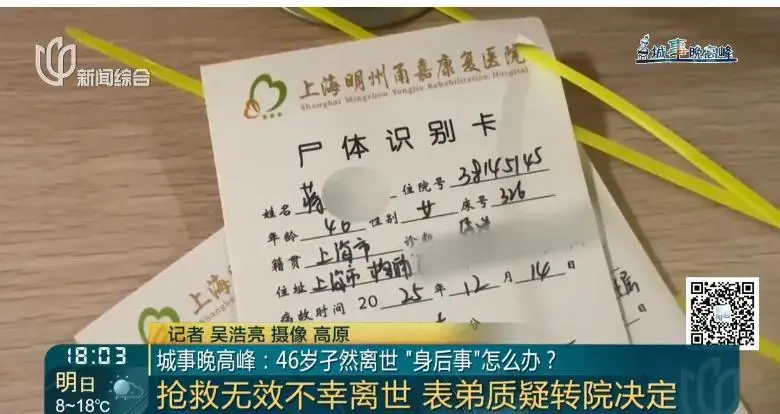 新闻综合
城事晚高峰
上海明州甬嘉康复医院
Shanghai Mingzhou Yongjia Rehabilitation Hospital
尸体识别卡
姓名 蒋 住院号 38145145
年龄 46 性别 女 床号 326
籍贯 上海市 诊断
住址 上海市
病故时间 2025年12月14日
上海
记者 吴浩亮 摄像 高原
18:03
城事晚高峰：46岁孑然离世 "身后事"怎么办？
明日
8~18℃
抢救无效不幸离世 表弟质疑转院决定